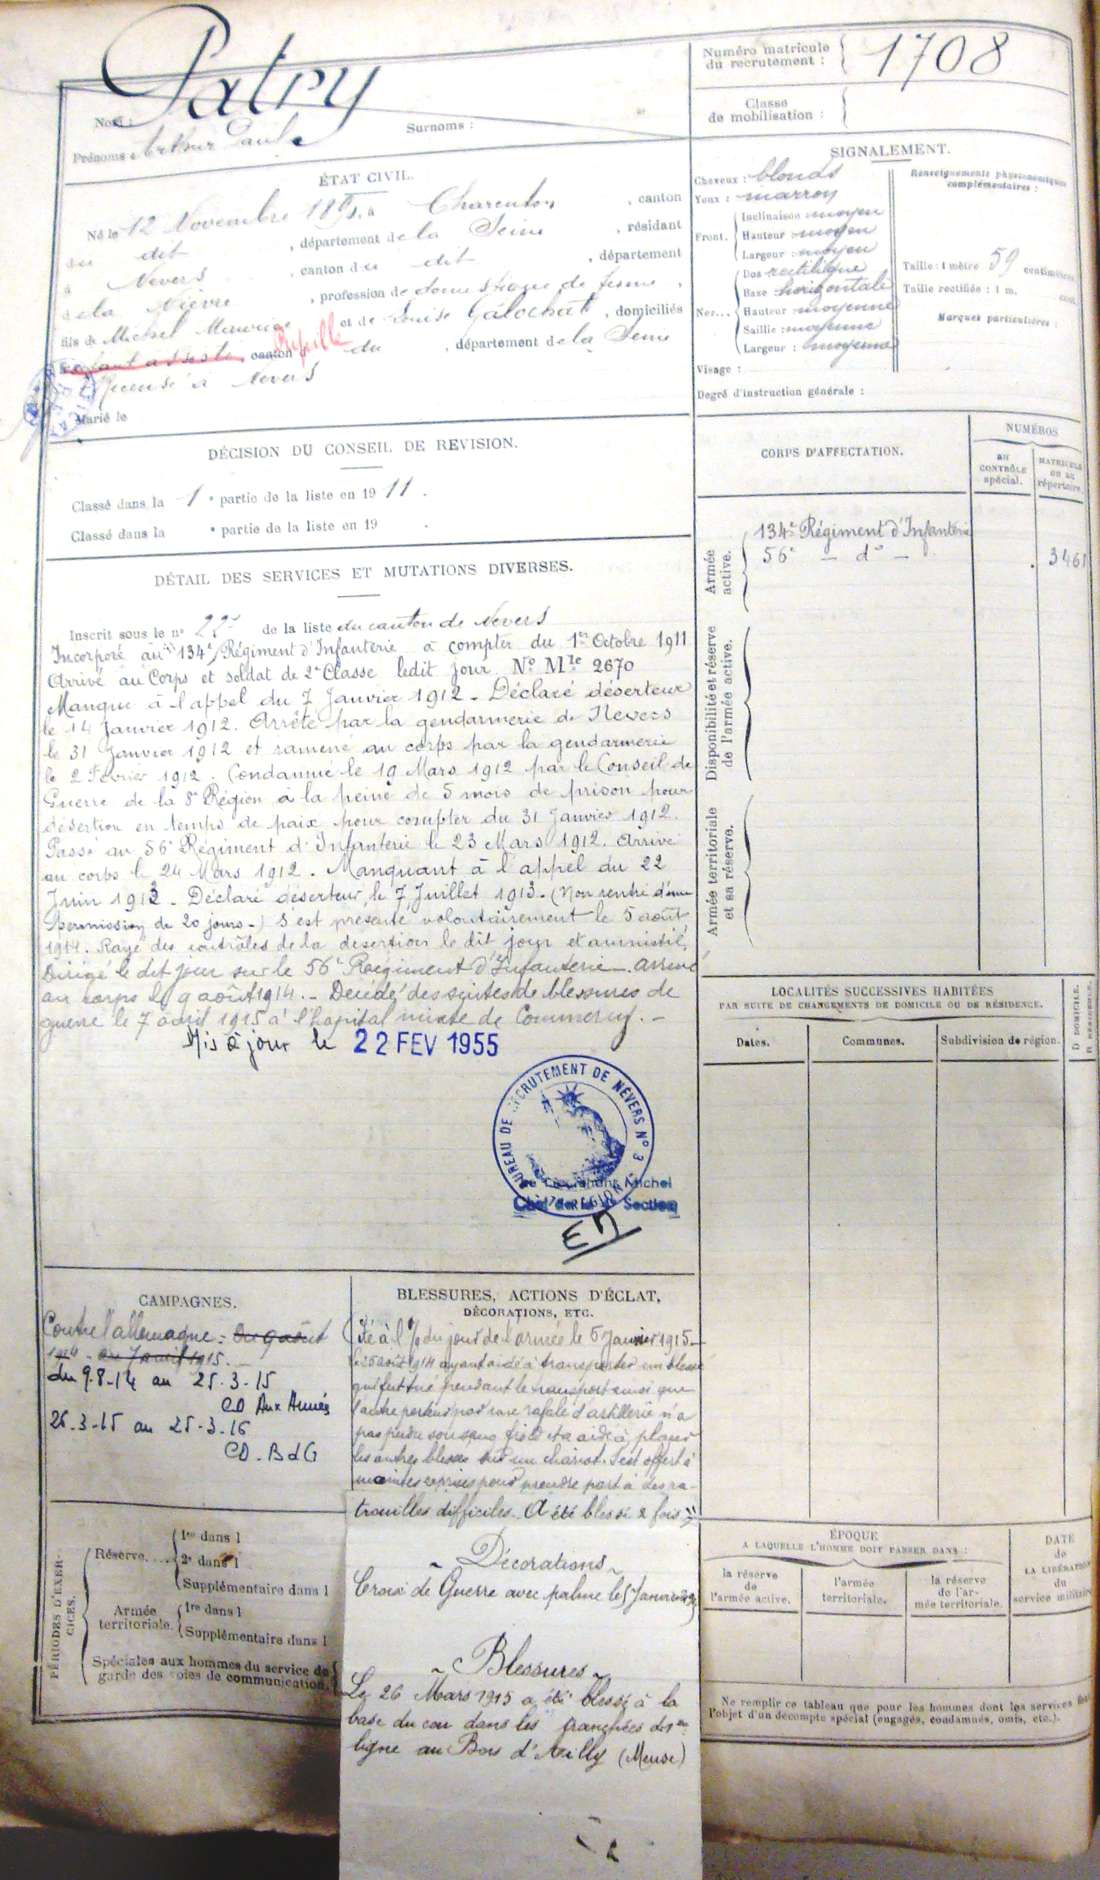 Patry
Nom :
Surnoms :
Prénoms : Arthur Paul
Numéro matricule du recrutement : 1708
Classe de mobilisation :
ÉTAT CIVIL.
Né le 12 Novembre 1891, à Charenton, canton
du dit, département de la Seine, résidant
à Nevers, canton du dit, département
de la Nièvre, profession de domestique de ferme,
fils de Michel Maurice et de Louise Galochat, domiciliés
enfant assisté canton du Pupille, département de la Seine
Recensé à Nevers
Marié le
SIGNALEMENT.
Cheveux : blonds
Yeux : marron
Front. Inclinaison moyen
Hauteur moyen
Largeur moyen
Nez... Dos rectiligne
Base horizontale
Hauteur moyenne
Saillie moyenne
Largeur : moyenne
Visage :
Degré d'instruction générale :
Renseignements physionomiques complémentaires :
Taille : 1 mètre 59 centimètres
Taille rectifiée : 1 m. cent.
Marques particulières :
DÉCISION DU CONSEIL DE REVISION.
Classé dans la 1 e partie de la liste en 19 11.
Classé dans la e partie de la liste en 19 .
DÉTAIL DES SERVICES ET MUTATIONS DIVERSES.
Inscrit sous le n° 22 de la liste du canton de Nevers
Incorporé au 134e Régiment d'Infanterie à compter du 1er Octobre 1911
Arrivé au Corps et soldat de 2e Classe ledit jour N° Mle 2670
Manque à l'appel du 7 Janvier 1912 - Déclaré déserteur
le 14 Janvier 1912. Arrêté par la gendarmerie de Nevers
le 31 Janvier 1912 et ramené au corps par la gendarmerie
le 2 Février 1912. Condamné le 19 Mars 1912 par le Conseil de
Guerre de la 8e Région à la peine de 5 mois de prison pour
désertion en temps de paix pour compter du 31 Janvier 1912.
Passé au 56e Régiment d'Infanterie le 23 Mars 1912. Arrivé
au corps le 24 Mars 1912. Manquant à l'appel du 22
Juin 1913 - Déclaré déserteur, le 7 Juillet 1913 - (Non rentré d'une
permission de 20 jours -) S'est présenté volontairement le 5 août
1914. Rayé des contrôles de la désertion le dit jour et amnistié,
Dirigé le dit jour sur le 56e Régiment d'Infanterie - arrivé
au corps le 9 août 1914. - Décédé des suites de blessures de
guerre le 7 avril 1915 à l'hôpital mixte de Commercy. -
Mis à jour le 22 FEV 1955
BUREAU DE RECRUTEMENT DE NEVERS N° 3
Le Lieutenant Michel
Chef de la Section
CORPS D'AFFECTATION.
NUMÉROS
au CONTRÔLE spécial.
MATRICULE ou au répertoire.
Armée active.
134e Régiment d'Infanterie
56e - do - 3461
Disponibilité et réserve de l'armée active.
Armée territoriale et sa réserve.
LOCALITÉS SUCCESSIVES HABITÉES
PAR SUITE DE CHANGEMENTS DE DOMICILE OU DE RÉSIDENCE.
Dates.
Communes.
Subdivision de région.
D DOMICILE.
R RÉSIDENCE.
CAMPAGNES.
Contre l'allemagne : Du 9 août
1914 - au 7 avril 1915. -
du 9-8-14 au 25-3-15
CD Aux Armées
26-3-15 au 25-3-16
CD - BdG
BLESSURES, ACTIONS D'ÉCLAT,
DÉCORATIONS, ETC.
Cité à l'o/ du jour de l'armée le 5 Janvier 1915 -
le 25 août 1914 ayant aidé à transporter un blessé
qui fut tué pendant le transport ainsi que
l'autre porteur par une rafale d'artillerie n'a
pas perdu son sang froid et a aidé à placer
les autres blessés sur un chariot. S'est offert à
maintes reprises pour prendre part à des pa-
trouilles difficiles. A été blessé 2 fois »
~ Décorations ~
Croix de Guerre avec palme le 5 Janvier
~ Blessures ~
Le 26 Mars 1915 a été blessé à la
base du cou dans les tranchées de 1ère
ligne au Bois d'Ailly (Meuse)
PÉRIODES D'EXERCICES.
Réserve.... 1re dans l
2e dans l
Supplémentaire dans l
Armée territoriale. 1re dans l
Supplémentaire dans l
Spéciales aux hommes du service de
garde des voies de communication.
ÉPOQUE
A LAQUELLE L'HOMME DOIT PASSER DANS :
la réserve de l'armée active.
l'armée territoriale.
la réserve de l'armée territoriale.
DATE de LA LIBÉRATION du service militaire
Ne remplir ce tableau que pour les hommes dont les services font
l'objet d'un décompte spécial (engagés, condamnés, omis, etc.).